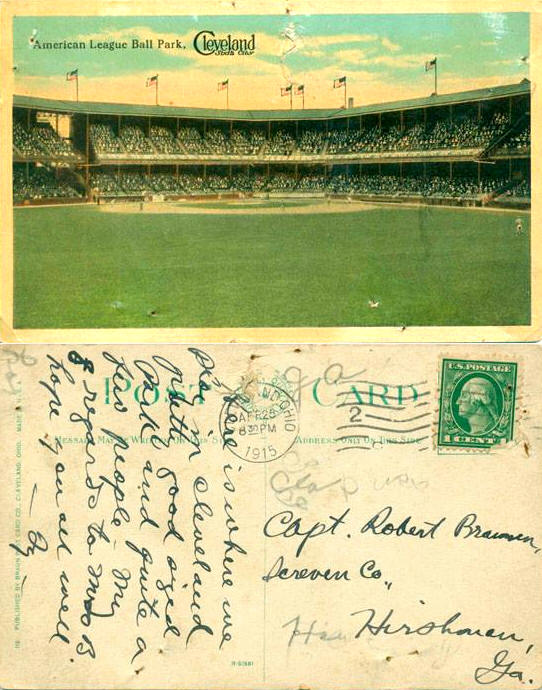 American League Ball Park, Cleveland
Sixth City
POST CARD
MESSAGE MAY BE WRITTEN ON THIS SIDE
ADDRESS ONLY ON THIS SIDE
Here is where we
play in Cleveland
pretty good sized
Park and quite a
few people. My
regards to Mrs B
hope you all well.
PUBLISHED BY BRAUN POST CARD CO., CLEVELAND, OHIO.
R-51581
OHIO
830 PM
1915
2
U.S. POSTAGE
1 CENT 1
Capt. Robert
Screven Co.,
Ga.